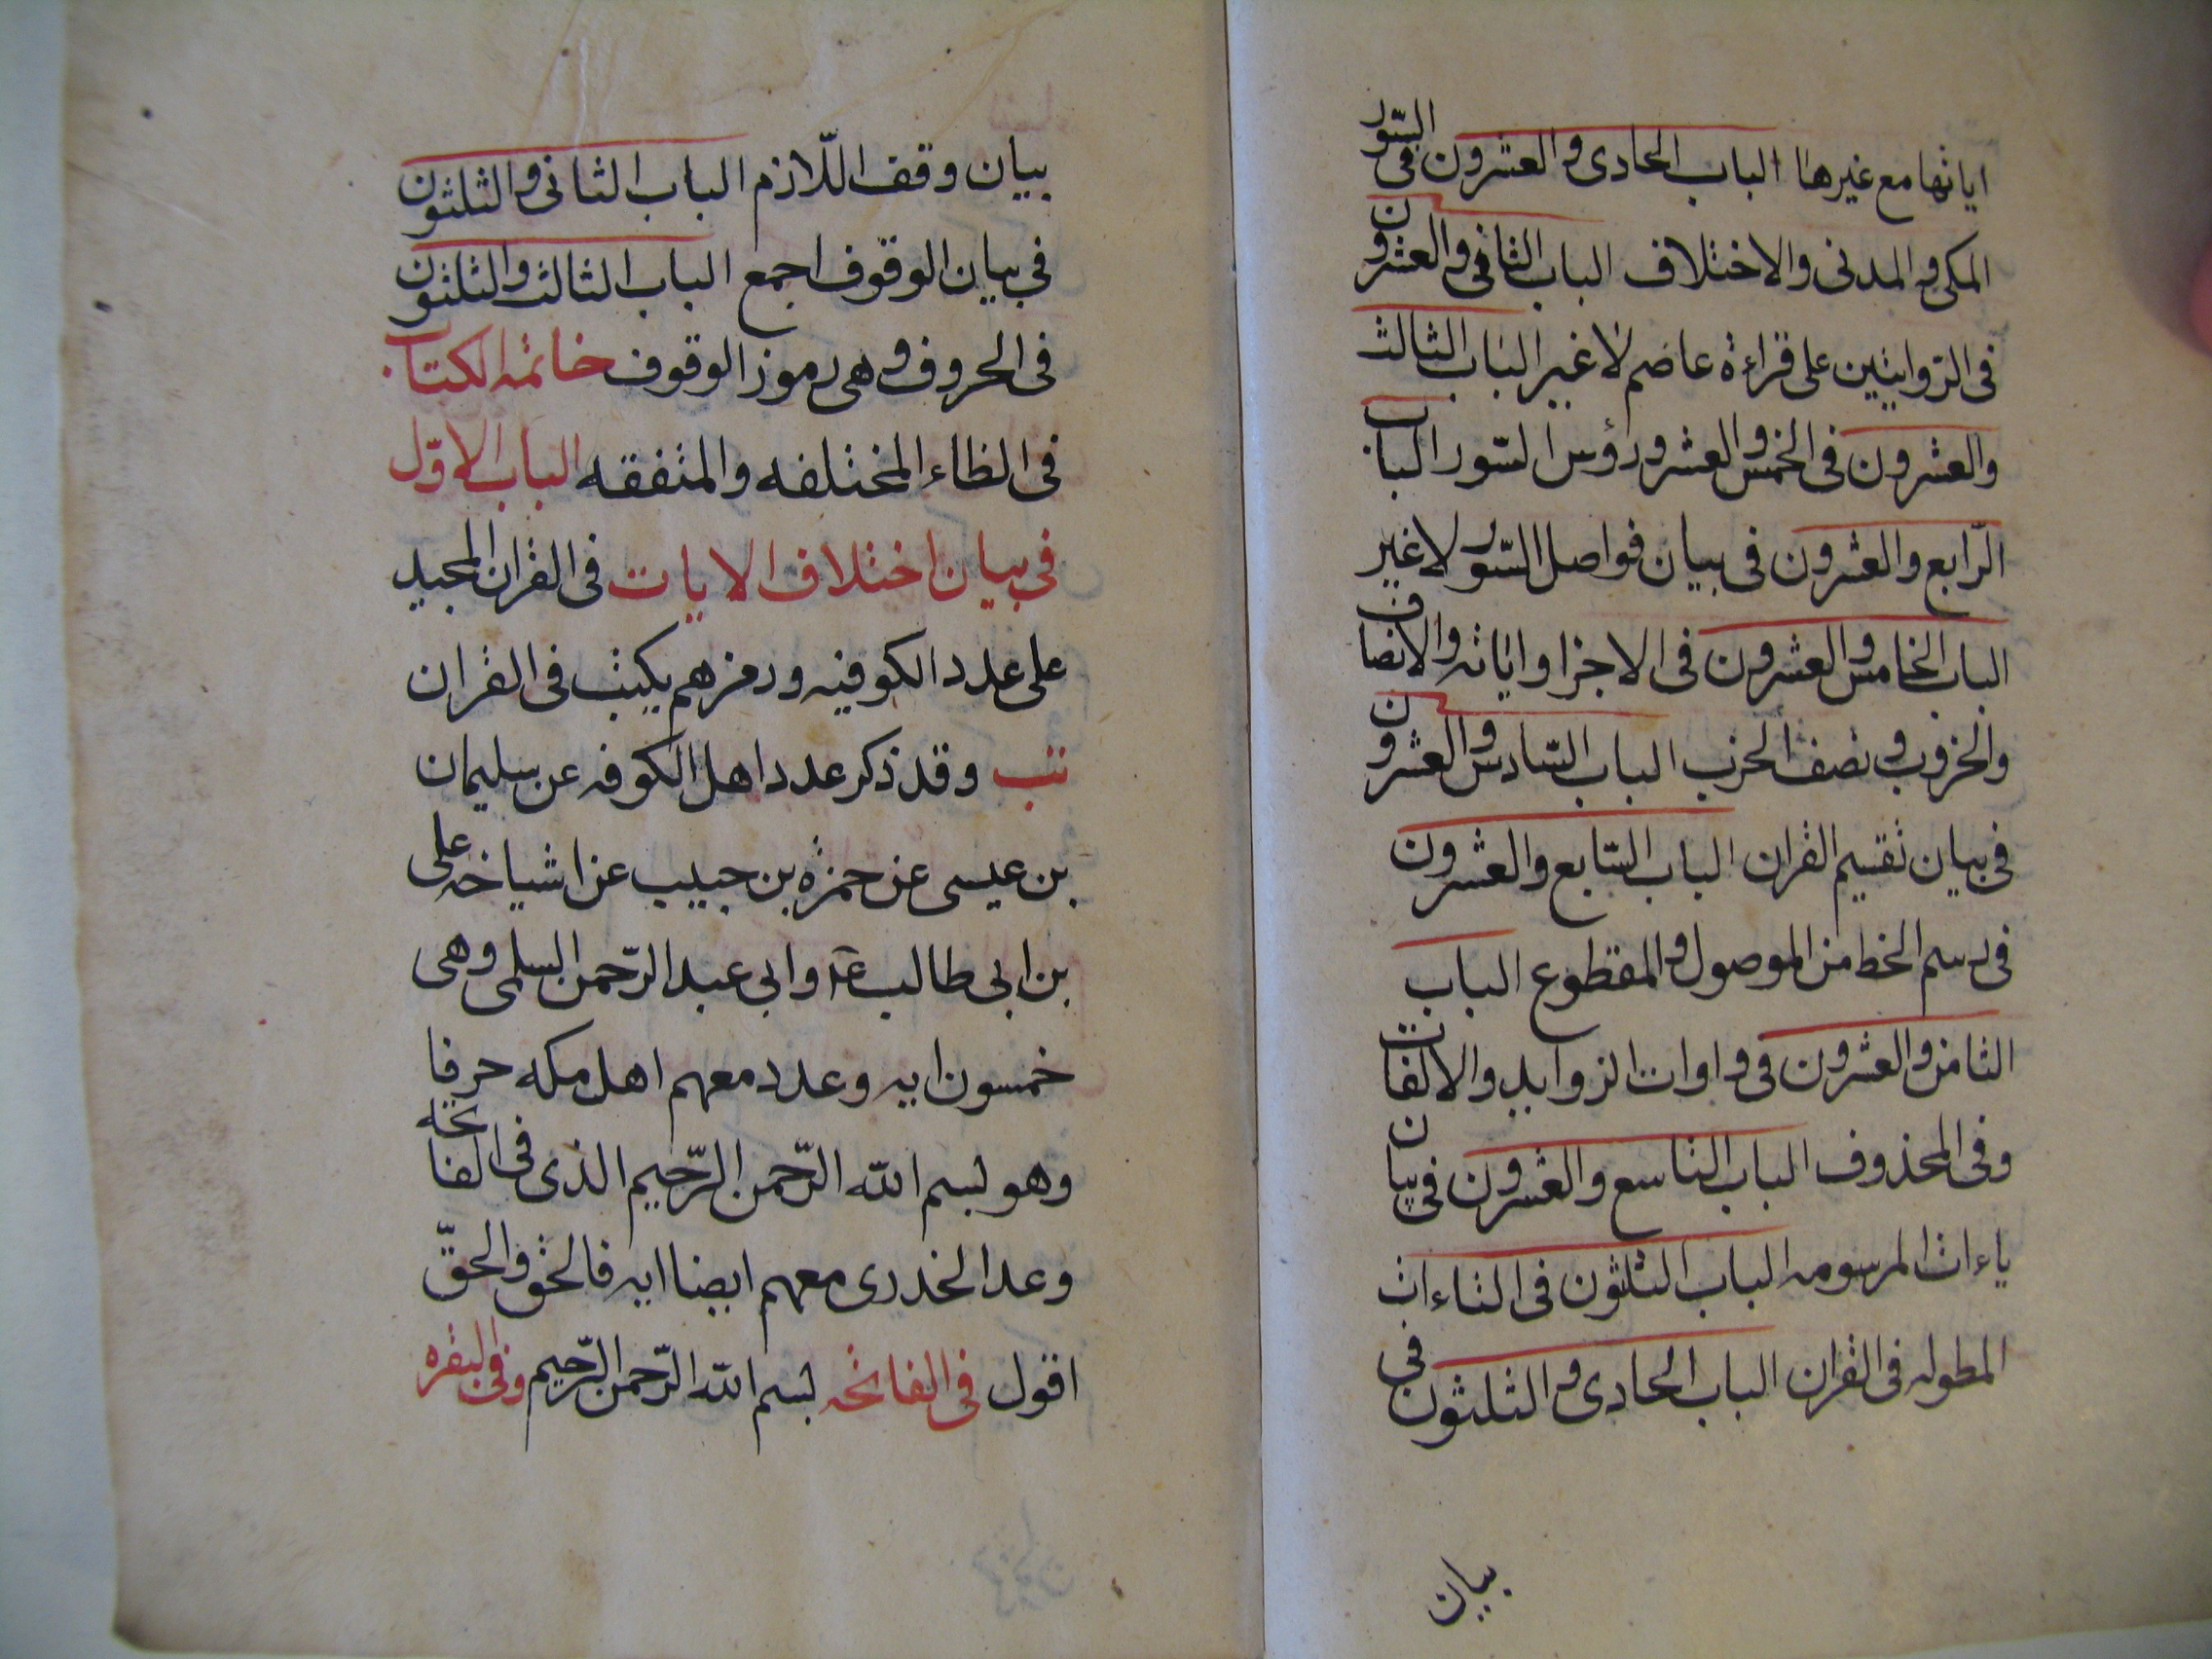 اياتها مع غيرها الباب الحادى والعشرون فى السّور
المكى والمدنى والاختلاف الباب الثانى والعشرون
فى الرّوايتين على قراءة عاصم لا غير الباب الثالث
والعشرون فى الخمس والعشر ورؤس السّور الباب
الرّابع والعشرون فى بيان فواصل السّور لا غير
الباب الخامس والعشرون فى الاجزا واياته والانصاف
والحزوب ونصف الحزب الباب السّادس والعشرون
فى بيان تقسيم القران الباب السّابع والعشرون
فى رسم الخط من الموصول والمقطوع الباب
الثامن والعشرون فى واوات الزوايد والالفات
وفى المحذوف الباب التاسع والعشرون فى بيان
ياءات المرسومه الباب الثلثون فى التاءات
المطوله فى القران الباب الحادى والثلثون فى
بيان
بيان وقف اللّازم الباب الثانى والثلثون
فى بيان الوقوف اجمع الباب الثالث والثلثون
فى الحروف وهى رموز الوقوف خاتمه الكتاب
فى الظاء المختلفه والمتفقه الباب الاوّل
فى بيان اختلاف الايات فى القران المجيد
على عدد الكوفيه ورمزهم يكتب فى القران
تب وقد ذكر عدد اهل الكوفه عن سليمان
بن عيسى عن حمزه بن حبيب عن اشياخه على
بن ابى طالب عم وابى عبد الرّحمن السلمى وهى
خمسون ايه وعدد معهم اهل مكه حرفا
وهو بسم الله الرّحمن الرّحيم الذى فى الفاتحه
وعد الخدرى معهم ايضا ايه فالحق والحقّ
اقول فى الفاتحه بسم الله الرّحمن الرّحيم وفى البقره